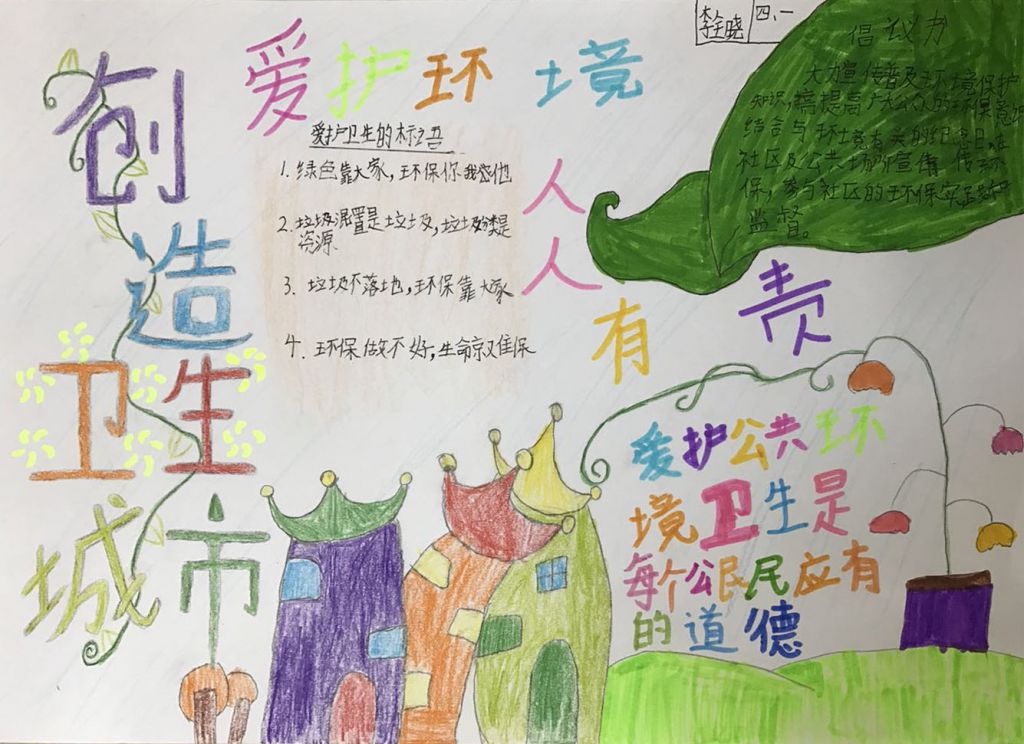 李全晓
四、一
爱护环境
人人有责
创造
卫生
城市
爱护卫生的标语
1. 绿色靠大家，环保你我他
2. 垃圾混置是垃圾，垃圾分类是
资源
3. 垃圾不落地，环保靠大家
4. 环保做不好，生命难保
倡议书
大力宣传普及环境保护
知识，提高广大公众的环保意识
结合与环境有关的纪念日，在
社区及公共场所宣传
保，参与社区的环保
监督。
爱护公共环
境卫生是
每个公民民应有
的道德